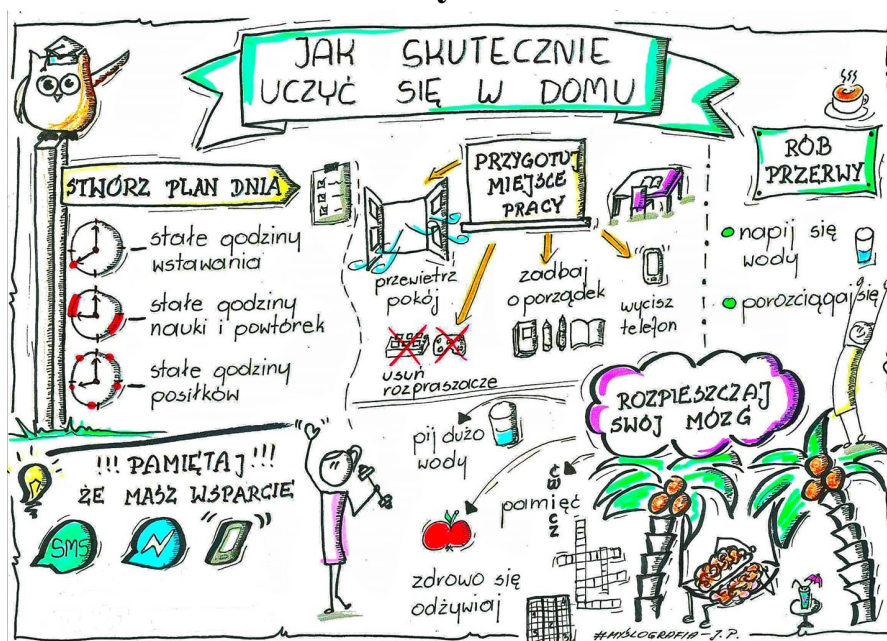 JAK SKUTECZNIE
UCZYĆ SIĘ W DOMU
STWÓRZ PLAN DNIA
stałe godziny
wstawania
stałe godziny
nauki i powtórek
stałe godziny
posiłków
PRZYGOTUJ
MIEJSCE
PRACY
przewietrz
pokój
zadbaj
o porządek
wycisz
telefon
usuń
rozpraszacze
RÓB
PRZERWY
napij się
wody
porozciągaj się
!!! PAMIĘTAJ !!!
ŻE MASZ WSPARCIE
SMS
ROZPIESZCZAJ
SWÓJ MÓZG
pij dużo
wody
ćwicz
pamięć
zdrowo się
odżywiaj
#MYŚLOGRAFIA - J.P.